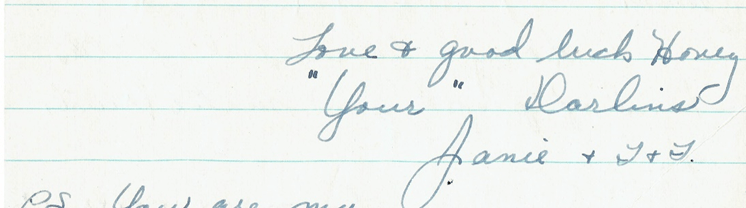 Love & good luck Honey
"Your" Darlins
Janie & J+J.
PS. Your are my